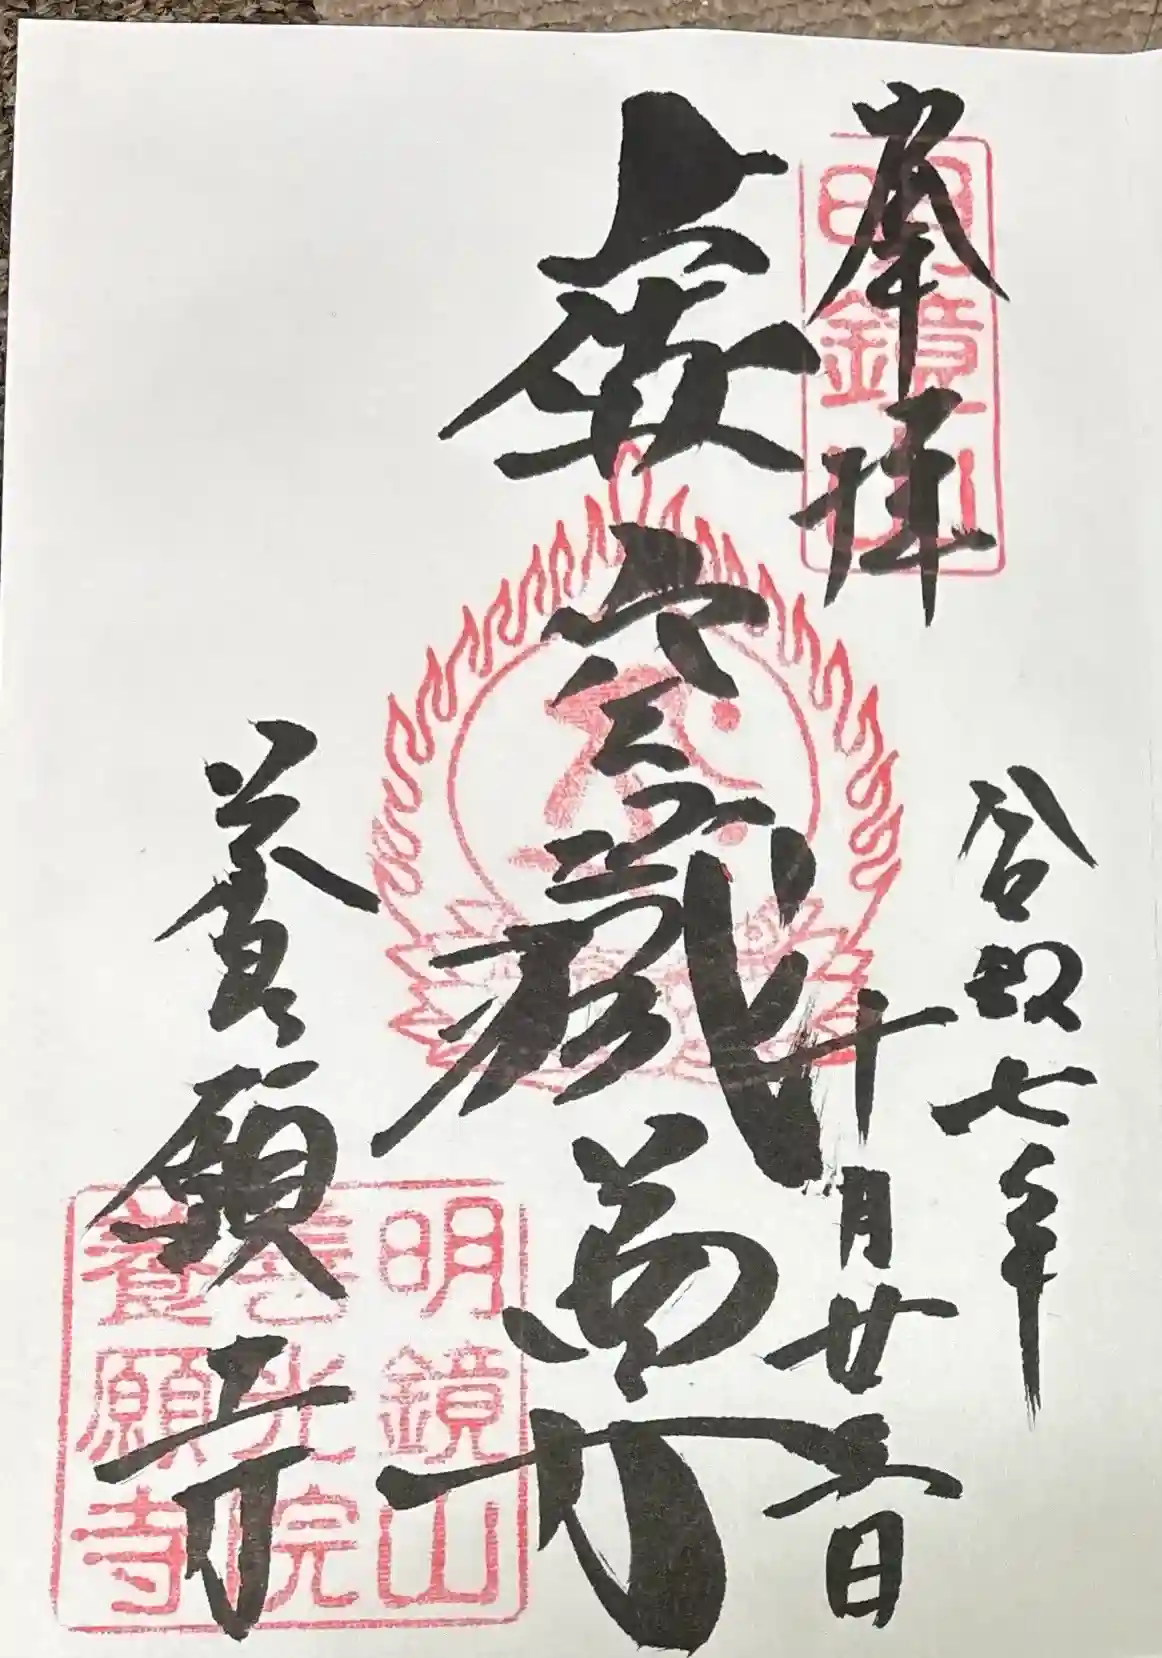 奉拝
明鏡山
令和七年
十月廿六日
虚空蔵尊
養願寺
明鏡山
善光院
養願寺